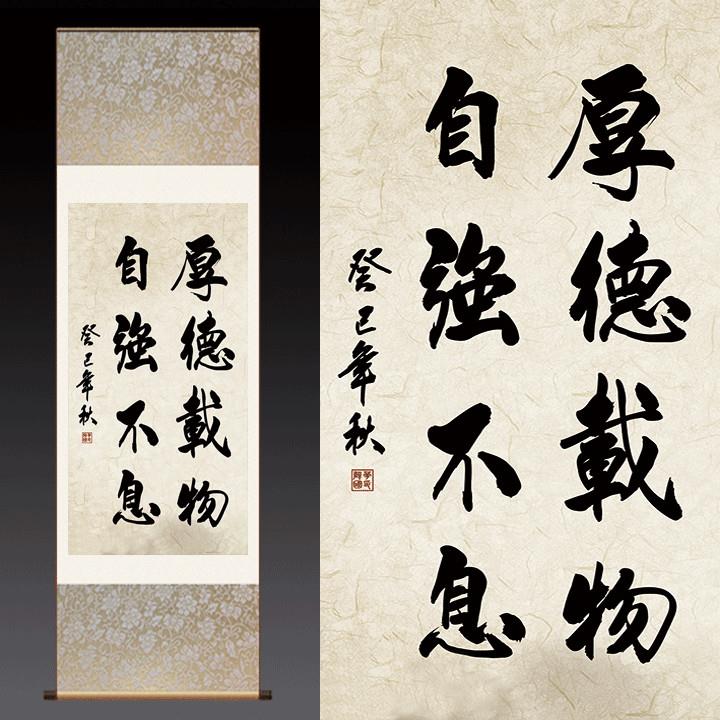 厚德載物
自強不息
癸巳年秋
厚德載物
自強不息
癸巳年秋